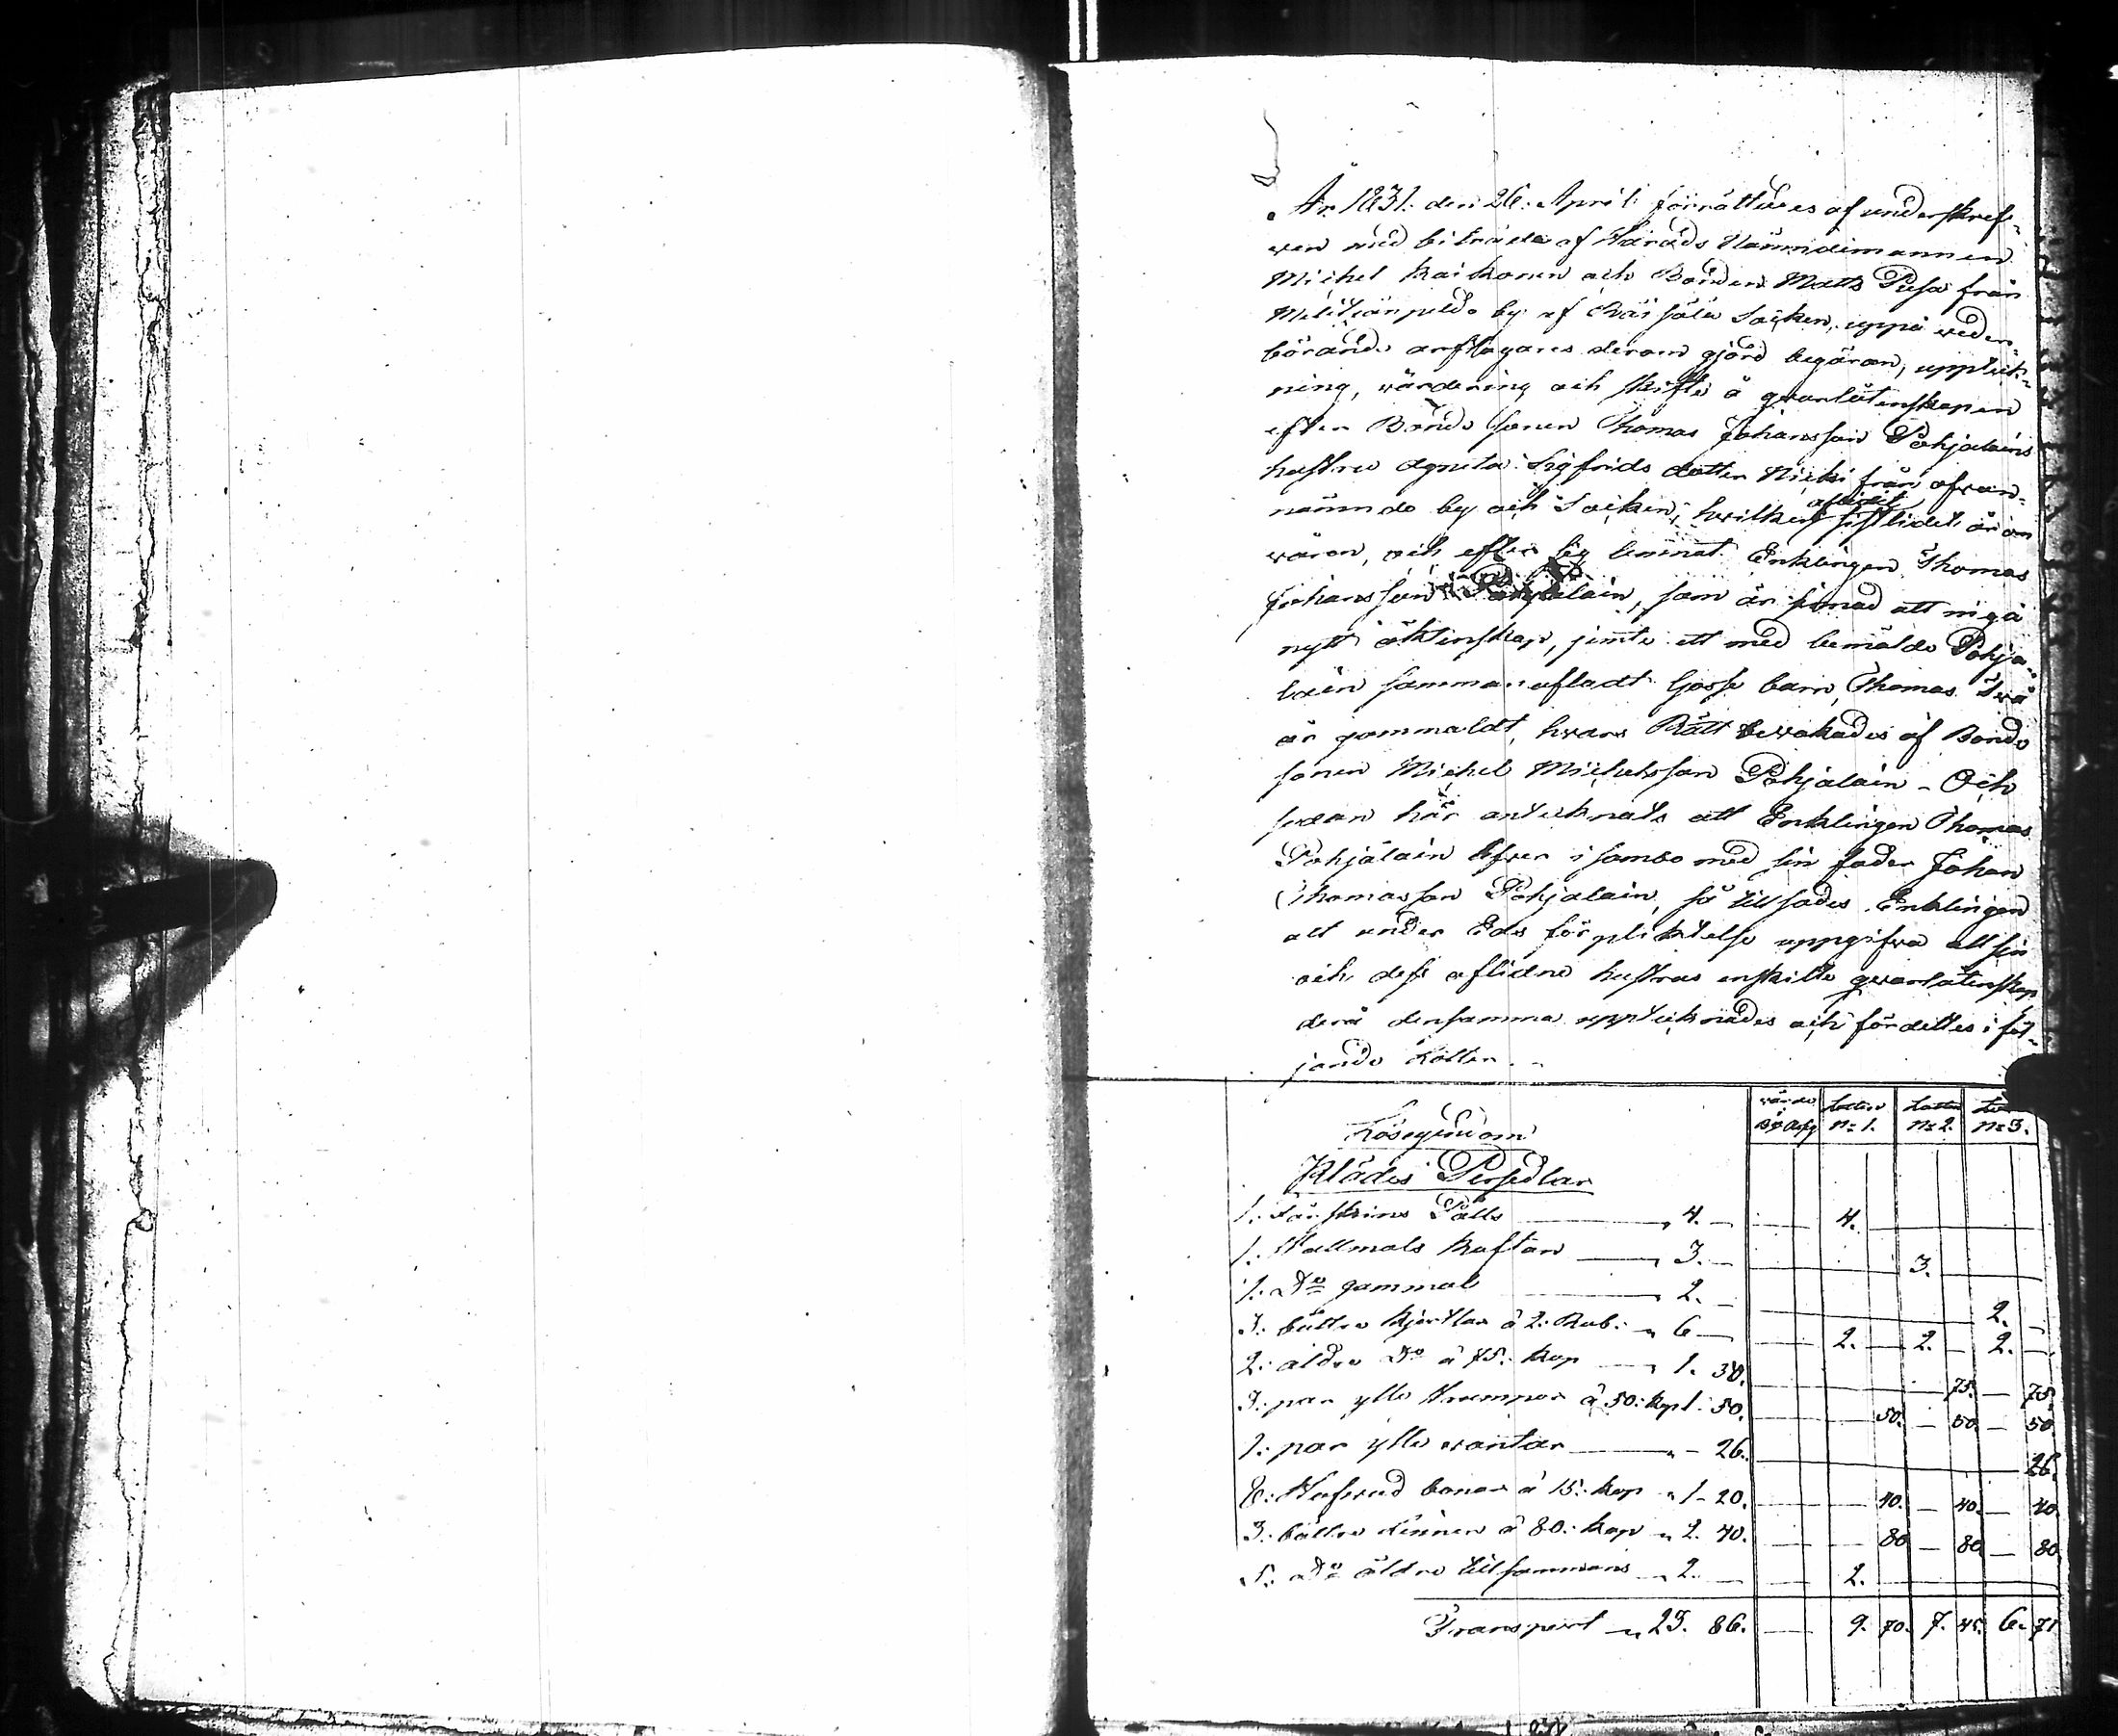 År 1831. den 26. April förrättades af underskref-
wen med biträde af Härads Nämndemannen
Michel Kaikonen och Bonden Matts Pusa från
by af Räisälä Socken, uppå weder-
börande arftagares derom gjord begäran, uppteck-
ning, värdering och skifte å qvarlåtenskapen
efter Bonde sonen Thomas Johansson Pohjalains
hustru Agneta Sigfrids dotter från ofvan-
nämnde by och Socken, hvilken aflidit sistlidet år om
våren, och efter sig lemnat Enklingen Thomas
Johansson Pohjalain, som är sinnad att ingå
nytt äktenskap, jemte ett med bemälde Pohja-
lain sammanafladt Gosse barn, Thomas två
år gammaldt, hvars Rätt bevakades af Bonde
sonen Michel Michelsson Pohjalain - Och
sedan här antecknats att Enklingen Thomas
Pohjalain lefver i sambo med sin fader Johan
Thomasson Pohjalain, så tillsades Enklingen
att under Eds förpliktelse uppgifva all sin
och dess aflidne hustrus enskilte qvarlåtenskap
derå densamma upptecknades och fördeltes i föl-
jande Lotter. -
värde i lotten lotten
N: 1. N: 2. N: 3.
Lösegendom
Klädes Persedlar
1. Fårskins Pälts 4. 4.
1. Wallmals Kaftan 3. 3.
1. Do gammal 2. 2.
3. bättre Kjortlar á 2. Rub. 6 2. 2. 2.
2. äldre Do á 75. kop 1. 50. 75. 75.
3. par ylle Strumpor á 50. kop 1. 50. 50. 50. 50
1. par ylle wantar 26. 26.
8. Hufvud bonar á 15. kop 1 - 20. 40. 40. 40
3. bättre Linnen á 80. kop 2. 40. 80 80 80
5. Do äldre tillsammans 2. 2.
Transport 23. 86. 9. 70. 7. 45. 6. 71